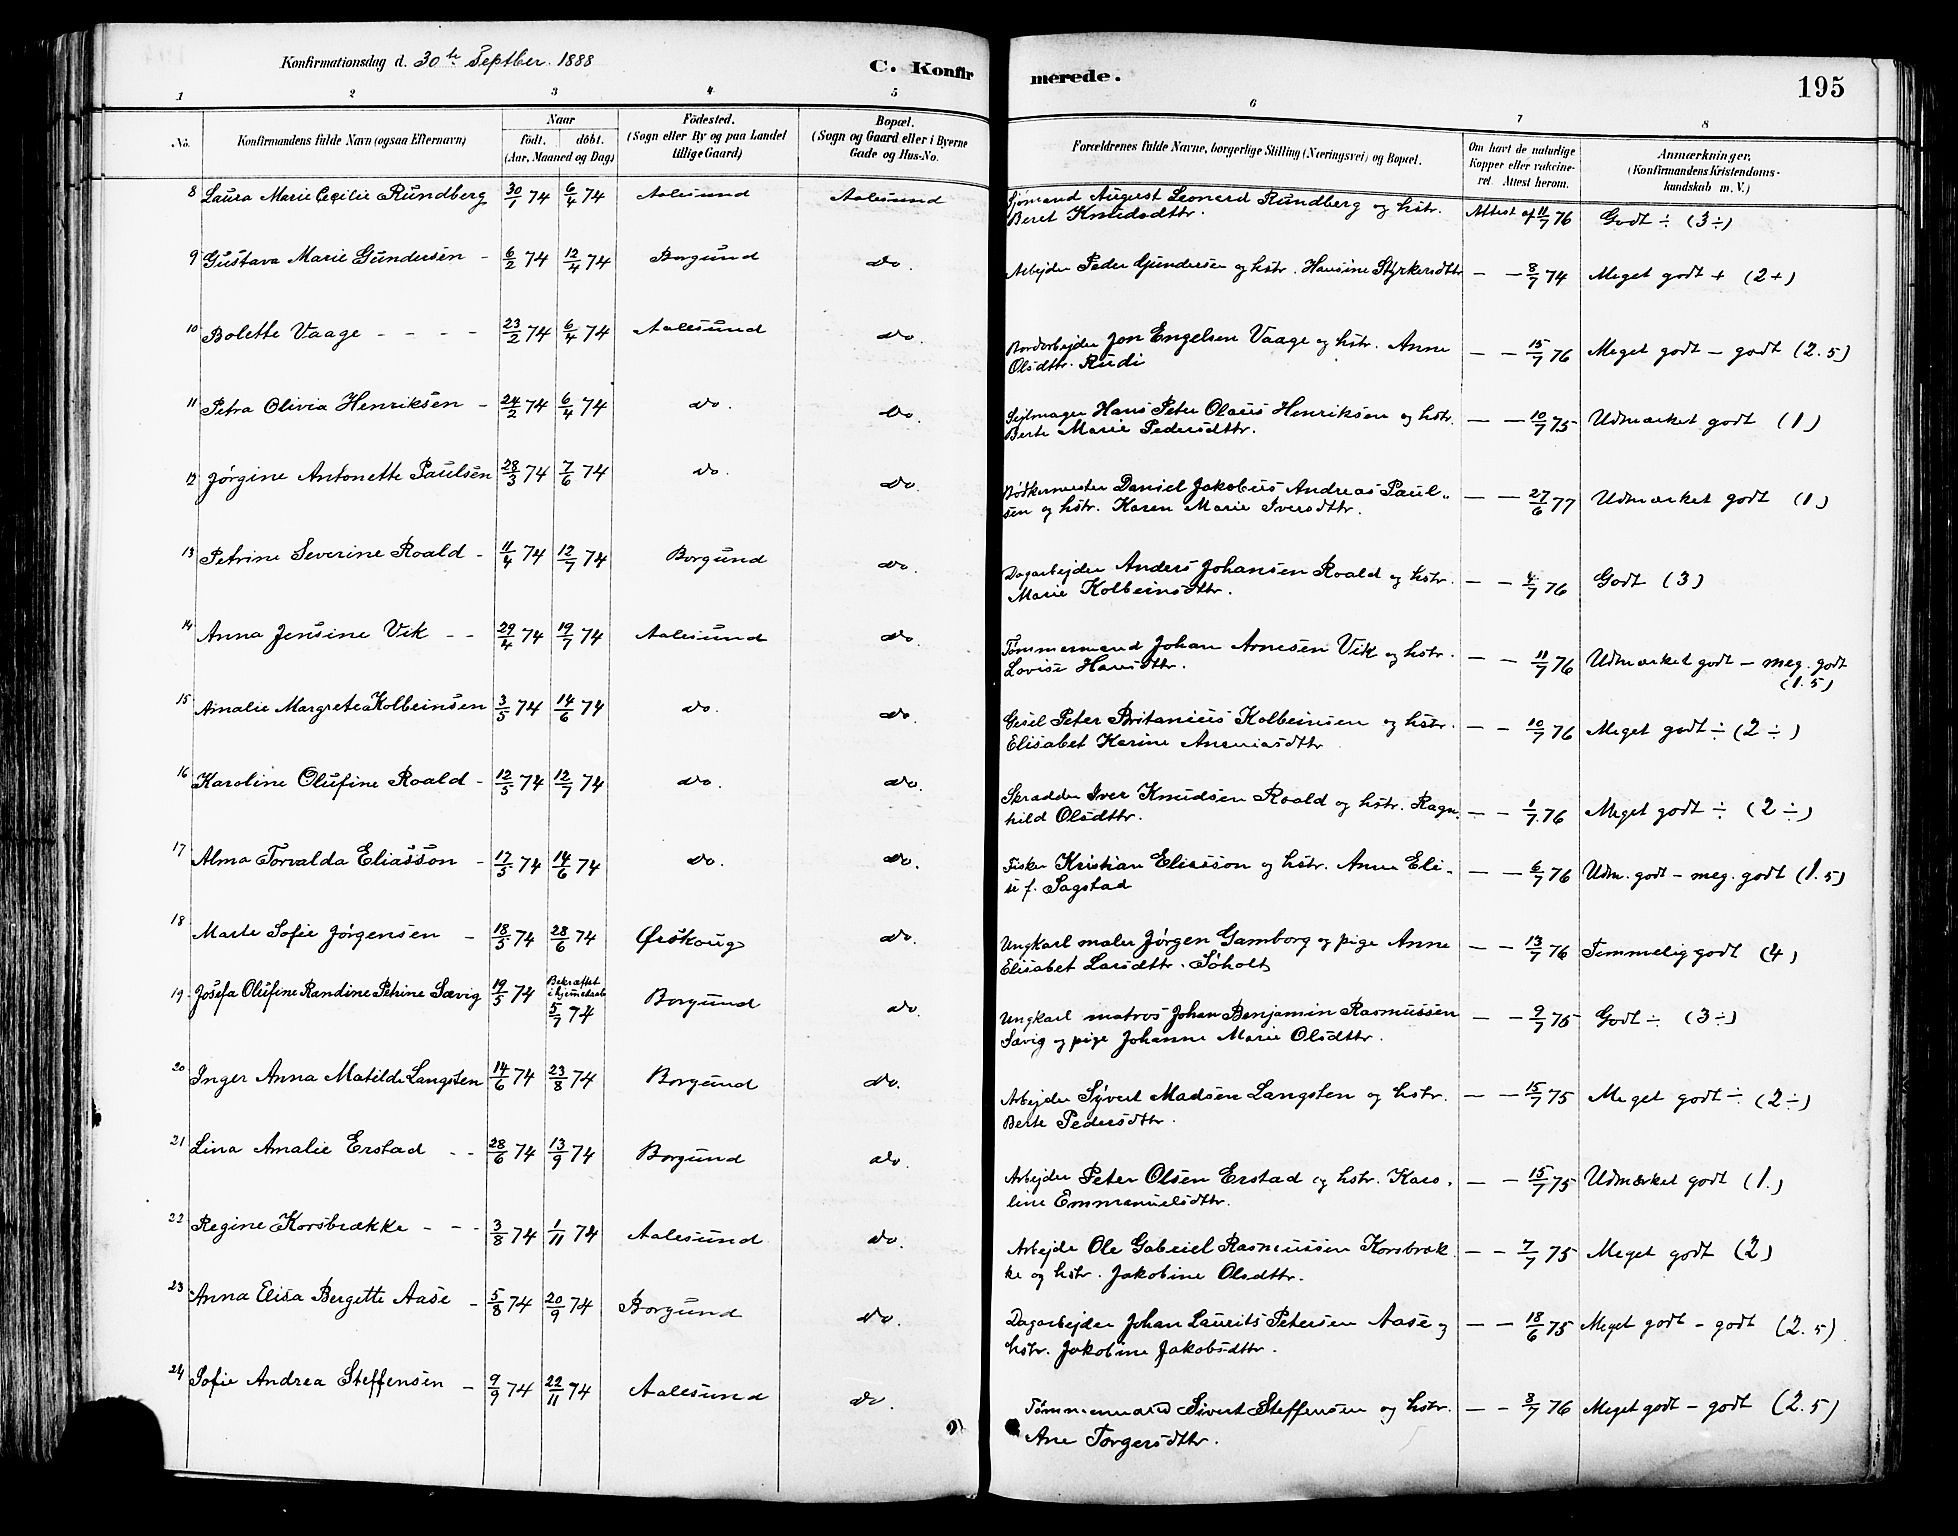 Konfirmationsdag d. 30te Septber. 1888
C. Konfirmerede.
195
1 2 3 4 5 6 7 8
No.
Konfirmandens fulde Navn (ogsaa Efternavn)
Naar
födt. döbt.
(Aar, Maaned og Dag)
Födested.
(Sogn eller By og paa Landet
tillige Gaard)
Bopæl.
(Sogn og Gaard eller i Byerne
Gade og Hus-No.
Forældrenes fulde Navne, borgerlige Stilling (Næringsvei) og Bopæl.
Om havt de naturlige
Kopper eller vakcine-
ret. Attest herom.
Anmærkninger.
(Konfirmandens Kristendoms-
kundskab m. V.)
8 Laura Marie Cecilie Rundberg 30/1 74 6/4 74 Aalesund Aalesund Sjømand August Leonard Rundberg og hstr. Attest af 11/7 76 Godt ÷ (3÷)
Beret Knudsdttr.
9 Gustava Marie Gundersen - 6/2 74 12/4 74 Borgund do. Arbejder Peder Gundersen og hstr. Hansine Styrkersdttr - - 8/7 74 Meget godt + (2+)
10 Bolette Vaage - - - - 23/2 74 6/4 74 Aalesund do. Bordarbejder Jon Engelsen Vaage og hstr. Anne - - 15/7 76 Meget godt - godt (2.5)
Olsdttr. Rudi
11 Petra Olivia Henriksen - 24/2 74 6/4 74 do. do. Sejlmager Hans Peter Olaus Henriksen og hstr. - - 10/7 75 Udmærket godt (1)
Berte Marie Pedersdttr.
12 Jørgine Antonette Paulsen 28/3 74 7/6 74 do. do. Bødkermester Daniel Jakobus Andreas Paul- - - 27/6 77 Udmærket godt (1)
sen og hstr. Karen Marie Iversdttr.
13 Petrine Severine Roald - 11/4 74 12/7 74 Borgund do. Dagarbejder Anders Johansen Roald og hstr. - - 4/7 76 Godt (3)
Marie Kolbeinsdttr.
14 Anna Jensine Vik - - 29/4 74 19/7 74 Aalesund do. Tømmermand Johan Arnesen Vik og hstr. - - 11/7 76 Udmærket godt - meg. godt
Lovise Hansdttr. (1.5)
15 Amalie Margrete Kolbeinsen 3/5 74 14/6 74 do. do. Gesel Peter Britanius Kolbeinsen og hstr. - - 10/7 76 Meget godt ÷ (2 ÷)
Elisabet Karine Ananiasdttr
16 Karoline Olufine Roald - 12/5 74 12/7 74 do. do. Skrædder Iver Knudsen Roald og hstr. Ragn- - - 1/7 76 Meget godt ÷ (2 ÷)
hild Olsdttr.
17 Alma Torvalda Eliasson - 17/5 74 14/6 74 do. do. Fisker Kristian Eliasson og hstr. Anne Eli- - - 6/7 76 Udm. godt - meg. godt (1.5)
se f. Sagstad
18 Marte Sofie Jørgensen - 18/5 74 28/6 74 Ørskoug do. Ungkarl maler Jørgen Gamborg og pige Anne - - 13/7 76 Temmelig godt (4)
Elisabet Larsdttr. Søholt
19 Josefa Olufine Randine Petrine Sævig 19/5 74 Bekræftet
i hjemmedaab
5/7 74 Borgund do. Ungkarl matros Johan Benjamin Rasmussen - - 9/7 75 Godt ÷ (3 ÷)
Sævig og pige Johanne Marie Olsdttr.
20 Inger Anna Matilde Langsten 14/6 74 23/8 74 Borgund do. Arbejder Syvert Madsen Langsten og hstr. - - 15/7 75 Meget godt ÷ (2 ÷)
Berte Pedersdttr.
21 Lina Amalie Erstad - - 28/6 74 13/9 74 Borgund do. Arbejder Peter Olsen Erstad og hstr. Karo- - - 15/7 75 Udmærket godt (1.)
line Emmanuelsdttr.
22 Regine Korsbrække - - - 3/8 74 1/11 74 Aalesund do. Arbejde Ole Gabriel Rasmussen Korsbræk- - - 7/7 75 Meget godt (2)
ke og hstr. Jakobine Olsdttr.
23 Anna Elisa Bergette Aase - 5/8 74 20/9 74 Borgund do. Dagarbejder Johan Laurits Petersen Aase og - - 18/6 75 Meget godt - godt (2.5)
hstr. Jakobine Jakobsdttr.
24 Sofie Andrea Steffensen - 9/9 74 22/11 74 Aalesund do. Tømmermand Sivert Steffensen og hstr. - - 8/7 76 Meget godt - godt (2.5)
Ane Torgersdttr.